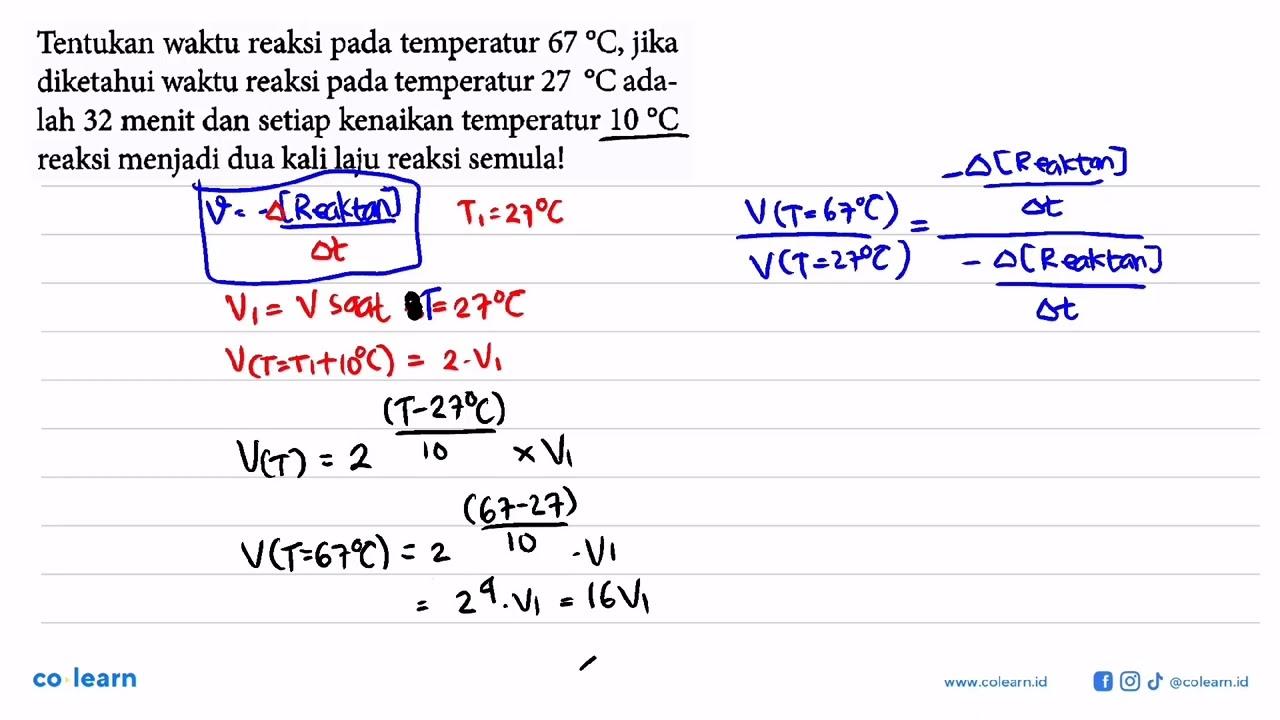 Tentukan waktu reaksi pada temperatur 67 °C, jika
diketahui waktu reaksi pada temperatur 27 °C ada-
lah 32 menit dan setiap kenaikan temperatur 10 °C
reaksi menjadi dua kali laju reaksi semula!
v = -Δ[Reaktan]
Δt
T₁ = 27°C
V₁ = V saat T = 27°C
V(T=T₁+10°C) = 2·V₁
V(T) = 2^((T-27°C)/10) × V₁
V(T=67°C) = 2^((67-27)/10) · V₁
= 2⁴ · V₁ = 16V₁
-Δ[Reaktan]
V(T=67°C) = Δt
V(T=27°C) - Δ[Reaktan]
Δt
co learn
www.colearn.id
@colearn.id